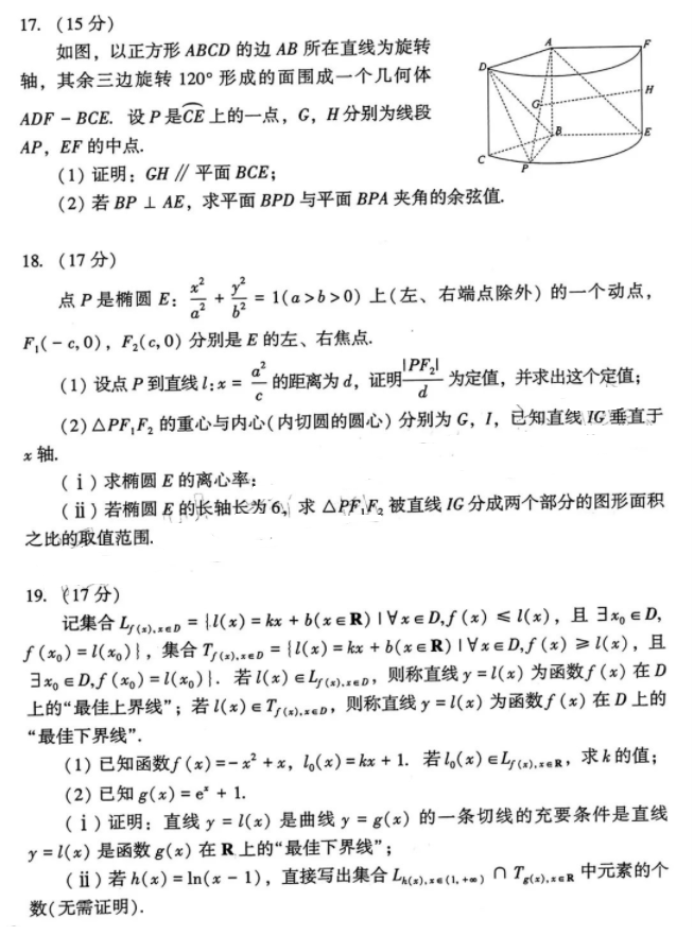 17. (15 分)
如图，以正方形 ABCD 的边 AB 所在直线为旋转
轴，其余三边旋转 120° 形成的面围成一个几何体
ADF - BCE. 设 P 是$\overset{\frown}{CE}$ 上的一点，G，H 分别为线段
AP，EF 的中点.
(1) 证明：GH // 平面 BCE；
(2) 若 BP ⊥ AE，求平面 BPD 与平面 BPA 夹角的余弦值.
A
F
D
H
G
B
E
C
P
18. (17 分)
点 P 是椭圆 E：$\frac{x^2}{a^2}+\frac{y^2}{b^2}=1(a>b>0)$ 上(左、右端点除外) 的一个动点，
F₁(-c,0)，F₂(c,0) 分别是 E 的左、右焦点.
(1) 设点 P 到直线 l:x = $\frac{a^2}{c}$ 的距离为 d，证明$\frac{|PF_2|}{d}$ 为定值，并求出这个定值；
(2) △PF₁F₂ 的重心与内心(内切圆的圆心) 分别为 G，I，已知直线 IG 垂直于
x 轴.
(ⅰ) 求椭圆 E 的离心率：
(ⅱ) 若椭圆 E 的长轴长为 6，求 △PF₁F₂ 被直线 IG 分成两个部分的图形面积
之比的取值范围.
19. (17 分)
记集合 $L_{f(x),x∈D}$ = {l(x) = kx + b(x ∈ R) | ∀x ∈ D,f(x) ≤ l(x)，且 ∃x₀ ∈ D,
f(x₀) = l(x₀)}，集合 $T_{f(x),x∈D}$ = {l(x) = kx + b(x ∈ R) | ∀x ∈ D,f(x) ≥ l(x)，且
∃x₀ ∈ D,f(x₀) = l(x₀)}. 若 l(x) ∈ $L_{f(x),x∈D}$，则称直线 y = l(x) 为函数 f(x) 在 D
上的“最佳上界线”；若 l(x) ∈ $T_{f(x),x∈D}$，则称直线 y = l(x) 为函数 f(x) 在 D 上的
“最佳下界线”.
(1) 已知函数 f(x) = - x² + x，l₀(x) = kx + 1. 若 l₀(x) ∈ $L_{f(x),x∈R}$，求 k 的值；
(2) 已知 g(x) = eˣ + 1.
(ⅰ) 证明：直线 y = l(x) 是曲线 y = g(x) 的一条切线的充要条件是直线
y = l(x) 是函数 g(x) 在 R 上的“最佳下界线”；
(ⅱ) 若 h(x) = ln(x - 1)，直接写出集合 $L_{h(x),x∈(1,+∞)}$ ∩ $T_{g(x),x∈R}$ 中元素的个
数(无需证明).